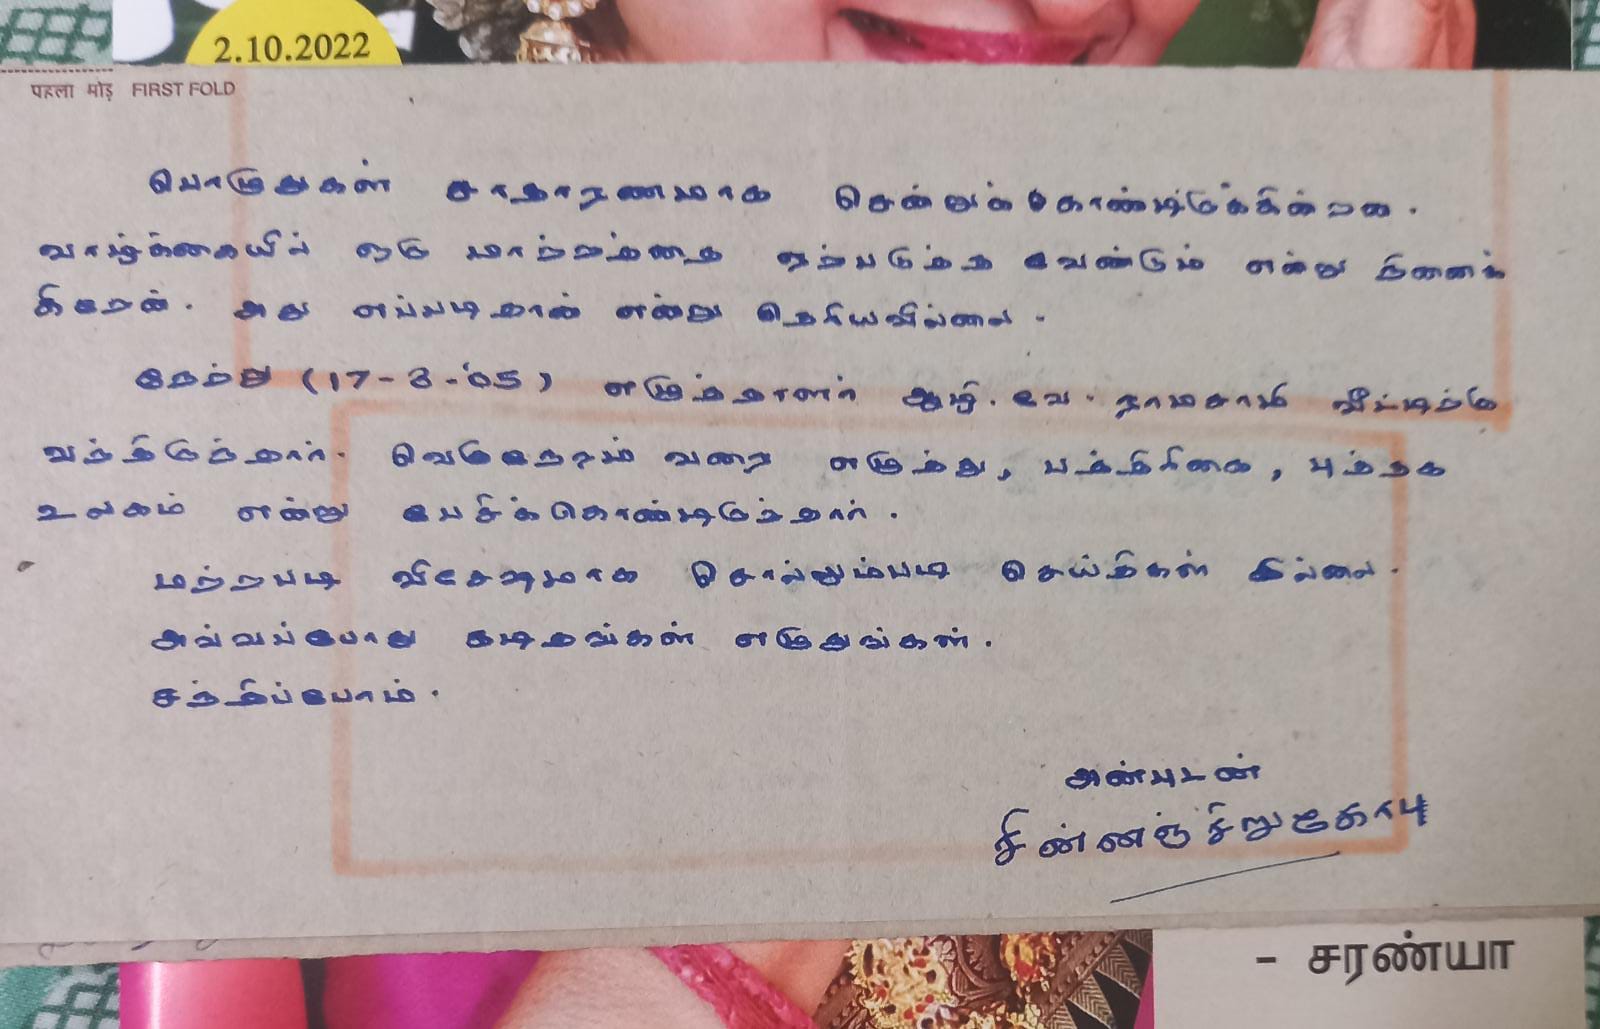 2.10.2022
पहला मोड़ FIRST FOLD
பொழுதுகள் சாதாரணமாக சென்றுக் கொண்டிருக்கின்றன.
வாழ்க்கையில் ஒரு மாற்றத்தை ஏற்படுத்த வேண்டும் என்று நினைக்
கிறேன். அது எப்படிதான் என்று தெரியவில்லை.
நேற்று (17-3-'05) எழுத்தாளர் ஆழி. வே. ராமசாமி வீட்டிற்கு
வந்திருந்தார். வெகுநேரம் வரை எழுத்து, பத்திரிகை, புத்தக
உலகம் என்று பேசிக்கொண்டிருந்தார்.
மற்றபடி விசேஷமாக சொல்லும்படி செய்திகள் இல்லை.
அவ்வப்போது கடிதங்கள் எழுதுங்கள்.
சந்திப்போம்.
அன்புடன்
சின்னஞ்சிறுகோபு
- சரண்யா